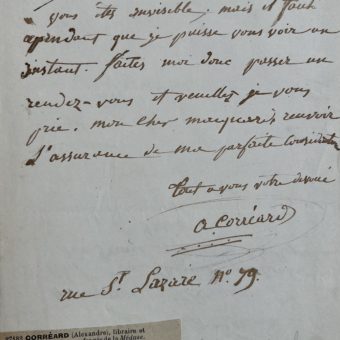 vous êtes invisible, mais il faut
cependant que je puisse vous voir un
instant. faites moi donc passer un
rendez-vous et veuillez je vous
prie, mon cher marquis recevoir
l'assurance de ma parfaite considération
tout à vous votre dévoué
A Corréard
rue St Lazare No. 79.
CORRÉARD (Alexandre), libraire et
de la Méduse,